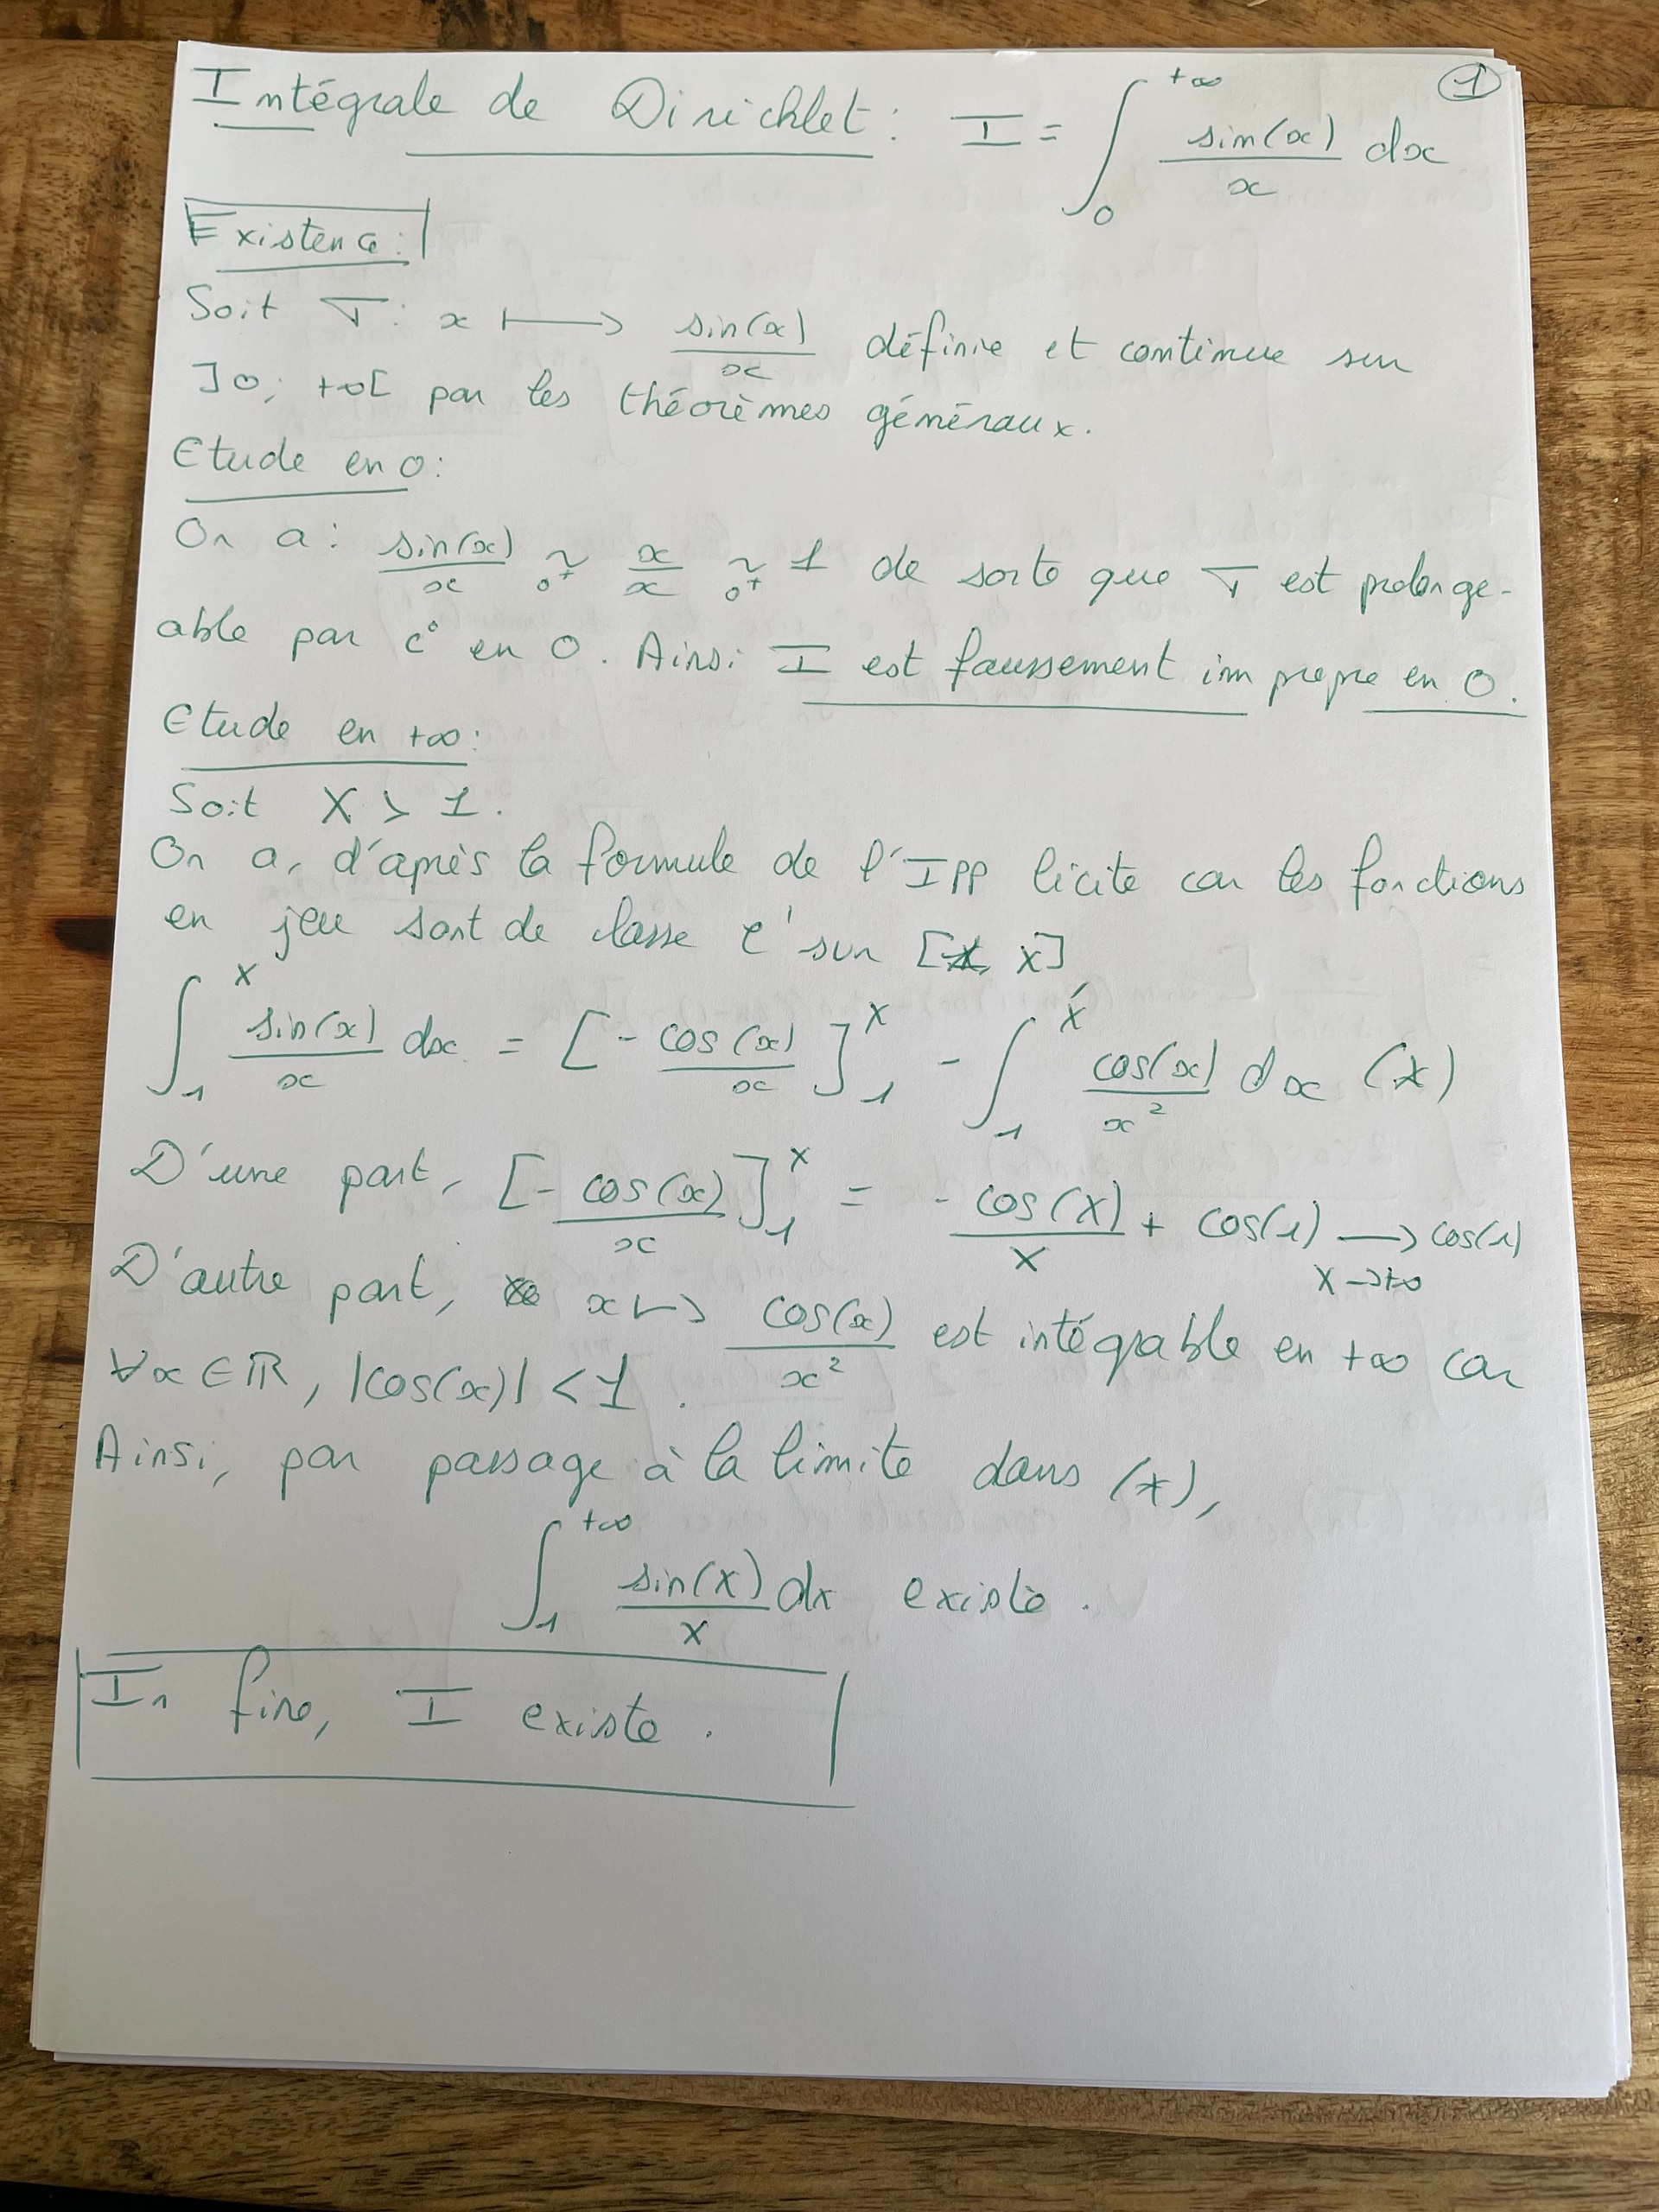 Intégrale de Dirichlet : I = ∫₀^{+∞} sin(x)/x dx ①
Existence :
Soit σ : x ⟼ sin(x)/x définie et continue sur
]0 ; +∞[ par les théorèmes généraux.
Etude en 0 :
On a : sin(x)/x ~_{0⁺} x/x ~_{0⁺} 1 de sorte que σ est prolonge-
able par C⁰ en 0. Ainsi I est faussement impropre en 0.
Etude en +∞ :
Soit X > 1.
On a, d'après la formule de l'IPP licite car les fonctions
en jeu sont de classe C¹ sur [1, X],
∫₁^X sin(x)/x dx = [- cos(x)/x]₁^X - ∫₁^X cos(x)/x² dx (*)
D'une part, [- cos(x)/x]₁^X = - cos(X)/X + cos(1) ⟶_{X→+∞} cos(1)
D'autre part, x ↦ cos(x)/x² est intégrable en +∞ car
∀x ∈ ℝ, |cos(x)| < 1.
Ainsi, par passage à la limite dans (*),
∫₁^{+∞} sin(x)/x dx existe.
In fine, I existe.